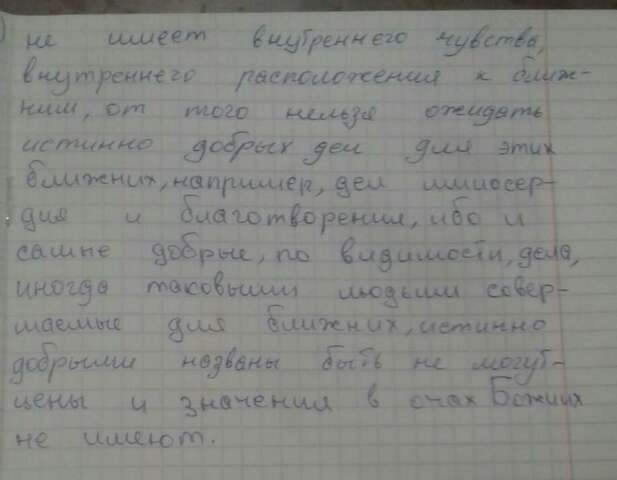 не имеет внутреннего чувства,
внутреннего расположения к ближ-
ним, от того нельзя ожидать
истинно добрых дел для этих
ближних, например, дел милосер-
дия и благотворения, ибо и
самые добрые, по видимости, дела,
иногда таковыми людьми совер-
шаемые для ближних, истинно
добрыми названы быть не могут-
цены и значения в очах Божиих
не имеют.